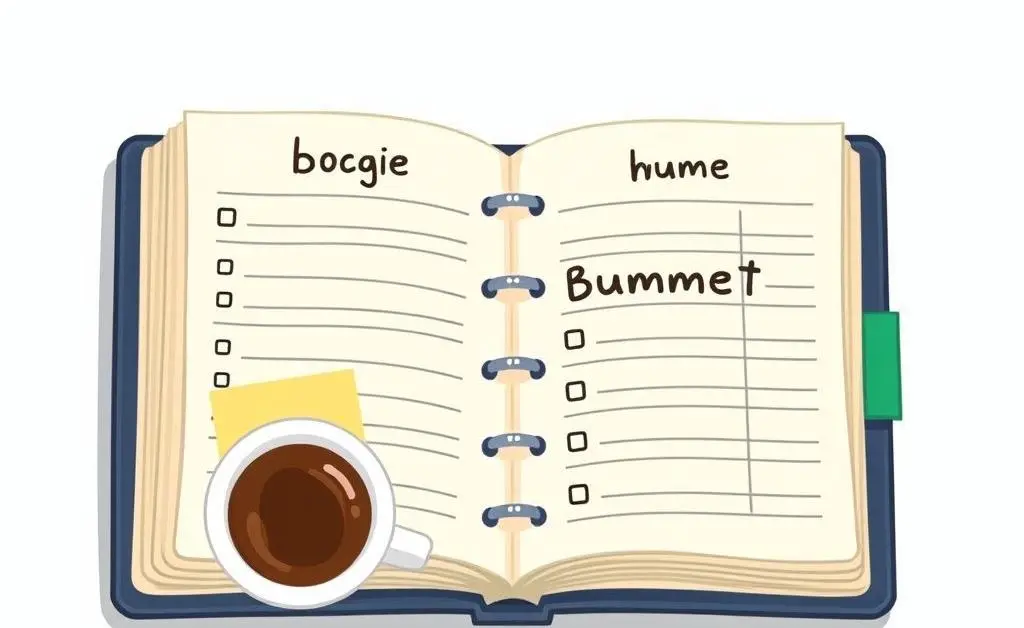 bocgie
hume
Bummet